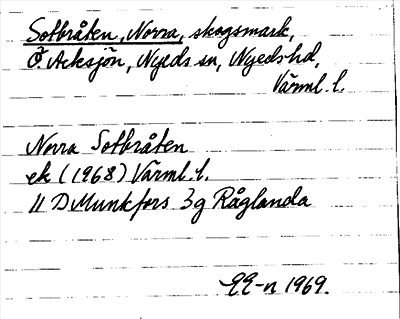 Sotbråten, Norra, skogsmark,
Ö. Acksjön, Nyeds sn, Nyeds hd,
Värml. l.
Norra Sotbråten
ek (1968) Värml. l.
11 D Munkfors 3g Råglanda
1969.